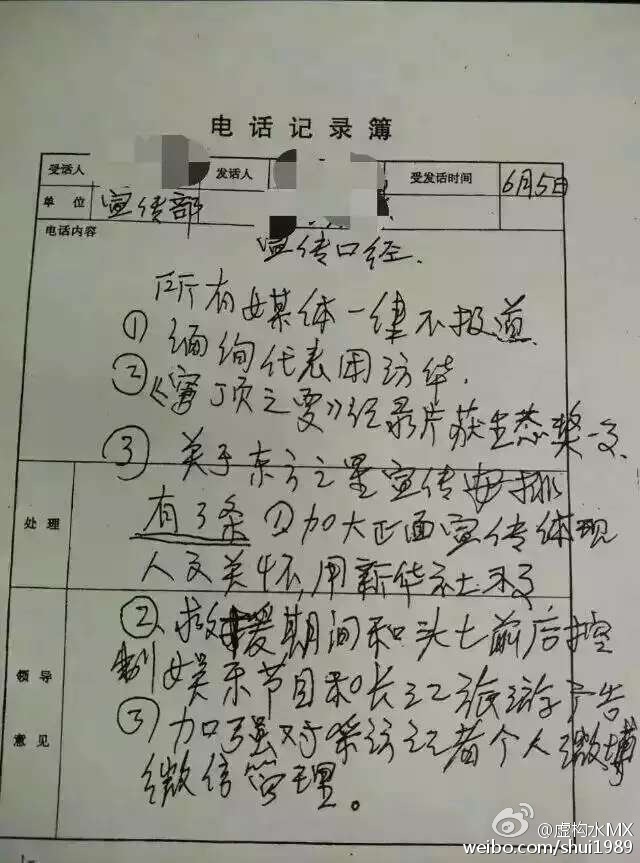 电话记录簿
受话人 发话人 受发话时间 6月5日
单位 宣传部
电话内容
宣传口经.
所有媒体一律不报道
① 缅甸代表团访华.
②《穹顶之下》纪录片获生态奖一文.
③ 关于东方之星宣传安排
处理
有3条 ①加大正面宣传体现
人文关怀,用新华社
②救援期间和头七前后控
制娱乐节目和长江旅游广告
领导
意见
③加强对采访记者个人微博
微信管理。
@虚构水MX
weibo.com/shui1989